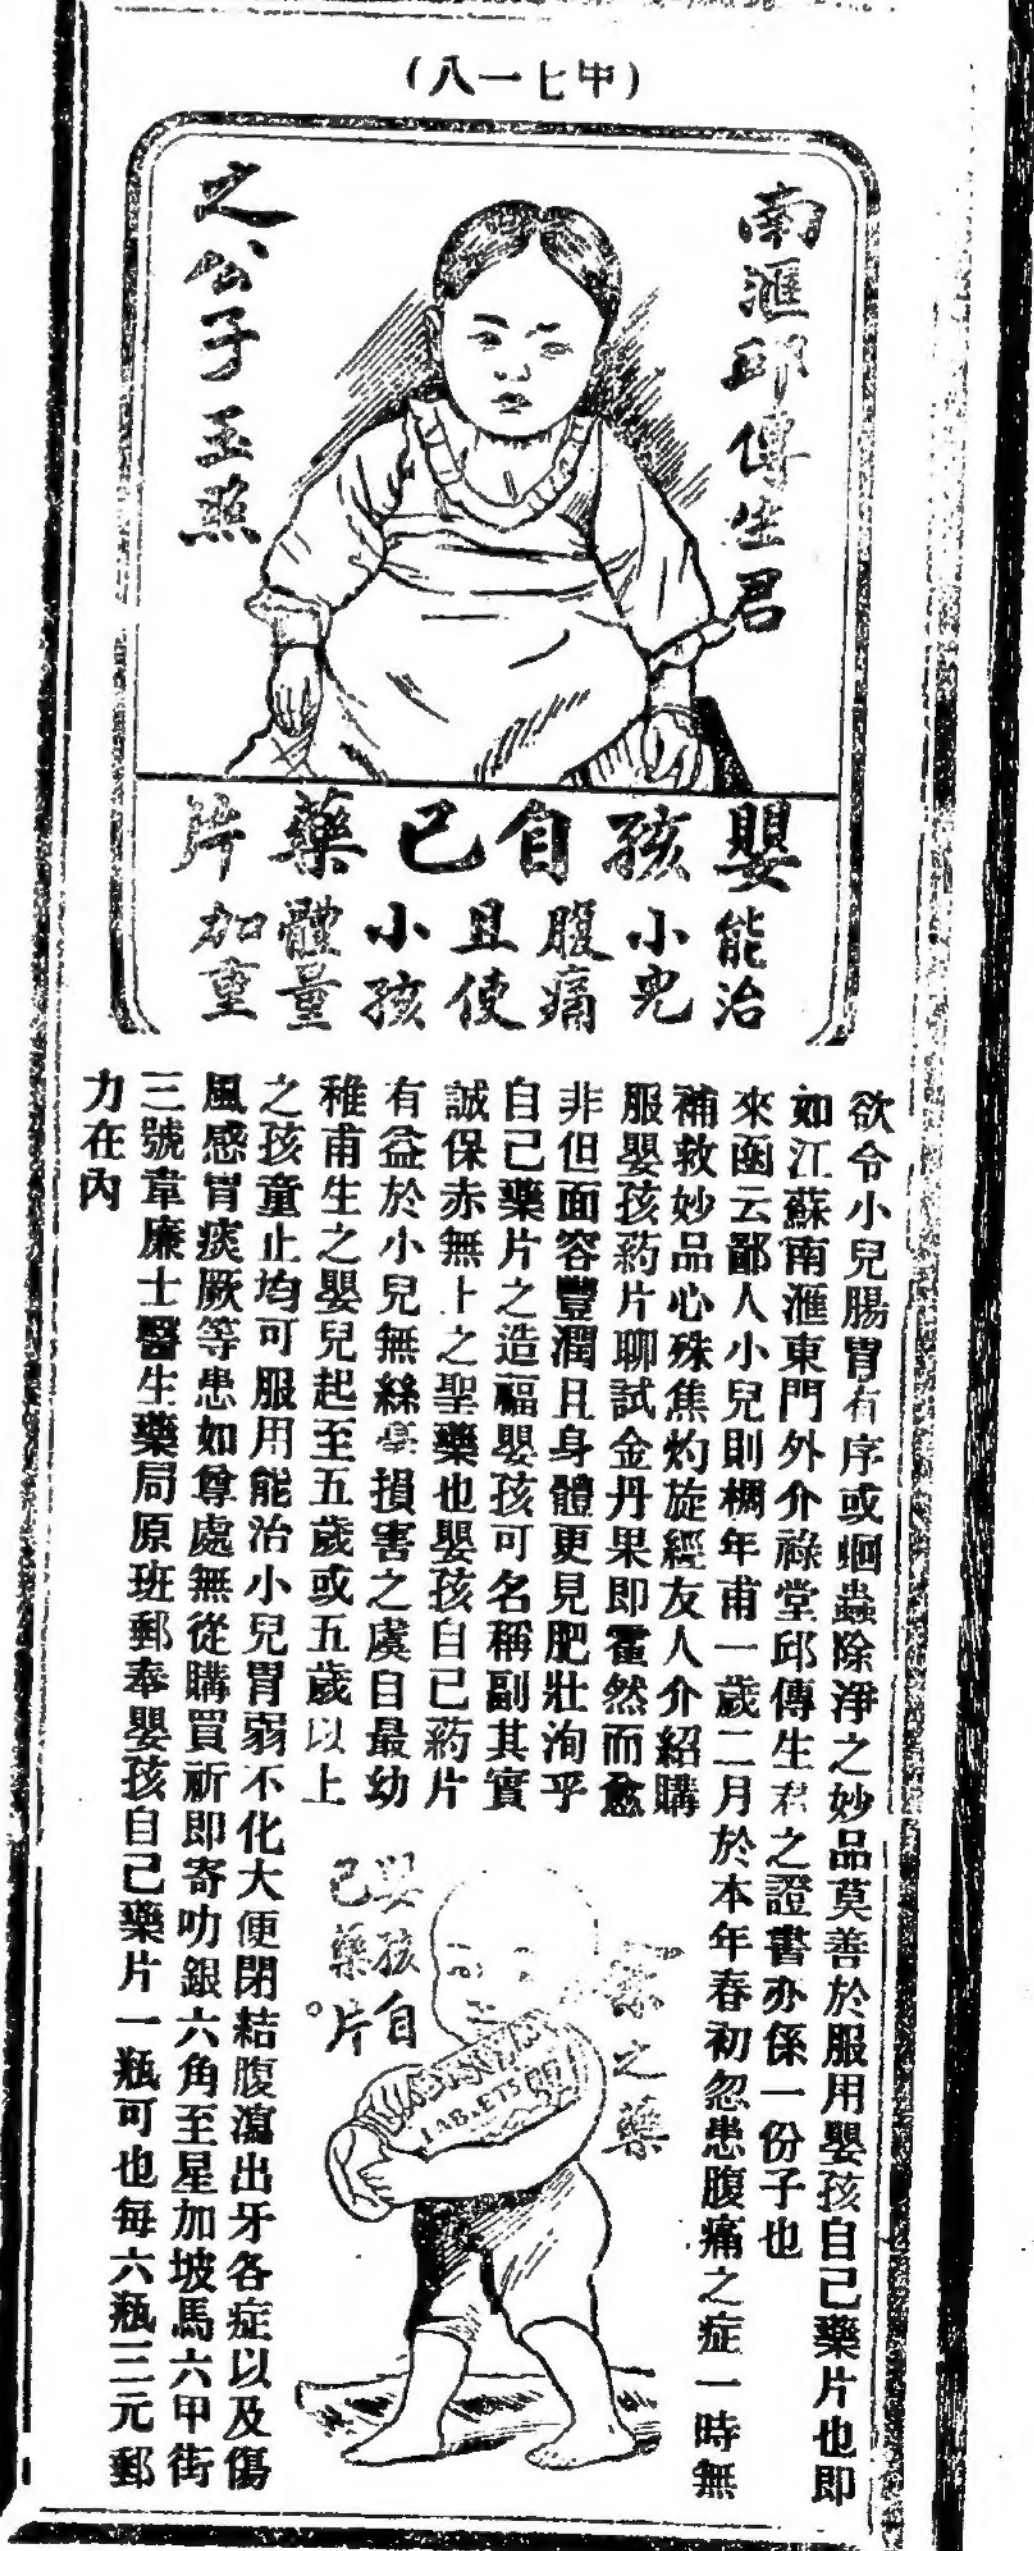 (八一七中)
南滙邱傳生君
之公子玉照
嬰孩自己藥片
能治小兒腹痛且使小孩體量加重
欲令小兒腸胃有序或蛔蟲除淨之妙品莫善於服用嬰孩自己藥片也即
如江蘇南滙東門外介祿堂邱傳生君之證書亦係一份子也
來函云鄙人小兒則棡年甫一歲二月於本年春初忽患腹痛之症一時無
補救妙品心殊焦灼旋經友人介紹購
服嬰孩药片聊試金丹果即霍然而愈
非但面容豐潤且身體更見肥壯洵乎
自己藥片之造福嬰孩可名稱副其實
誠保赤無上之聖藥也嬰孩自己药片
有益於小兒無絲毫損害之虞自最幼
稚甫生之嬰兒起至五歲或五歲以上
之孩童止均可服用能治小兒胃弱不化大便閉結腹瀉出牙各症以及傷
風感冒痰厥等患如尊處無從購買祈即寄叻銀六角至星加坡馬六甲街
三號韋廉士醫生藥局原班郵奉嬰孩自己藥片一瓶可也每六瓶三元郵
力在內
之藥
嬰孩自
己藥片。
TABLETS